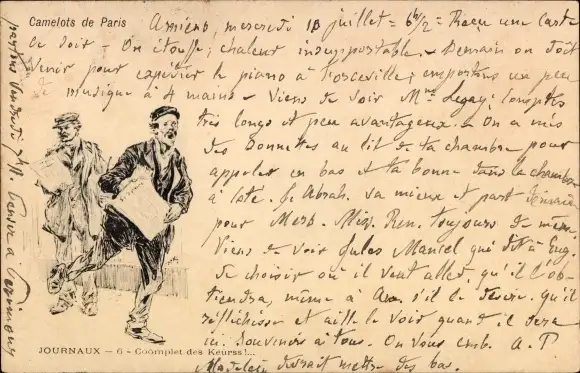 Camelots de Paris
Amiens, mercredi 18 juillet = 6h 1/2 = Reçu une carte
ce soir - On étouffe; chaleur insupportable - Demain on doit
venir pour expédier le piano à ; emportons un peu
de musique à 4 mains - Viens de voir Mme Legay; comptes
très longs et peu avantageux. - On a mis
des sonnettes au lit de ta chambre pour
appeler en bas et ta bonne dans la chambre
à côté. Abrah. va mieux et part demain
pour Mers. Ren. toujours de même.
Viens de voir Jules Mancel qui dit à Eug.
de choisir où il veut aller, qu'il l'ob-
tiendra, même à s'il le désire. Qu'il
réfléchisse et aille le voir quand il sera
ici. Souvenirs à tous. On vous emb. A. P
Madeleine devrait mettre des bas.
JOURNAUX - 6 - Coomplet des Keurss!...
partons Vendredi